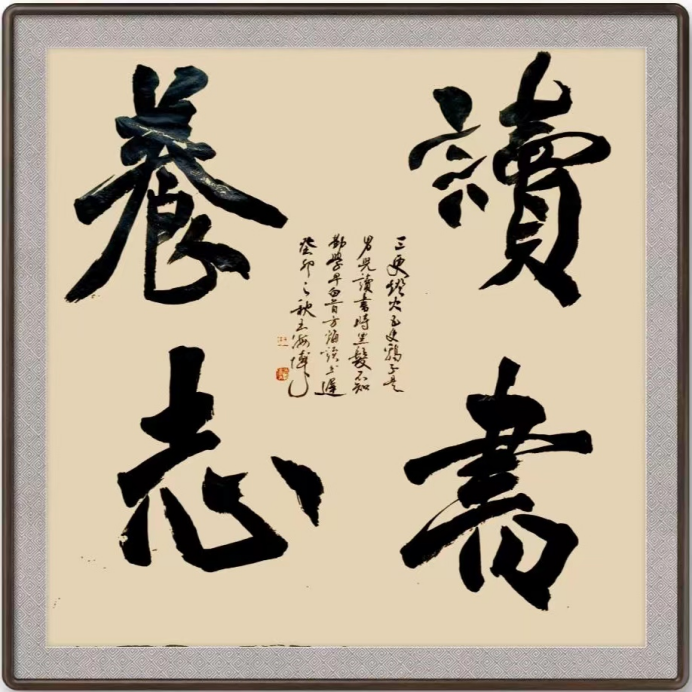 讀書
養志
三更燈火五更鷄正是
男兒讀書時黑髮不知
勤學早白首方悔讀書遲
癸卯之秋